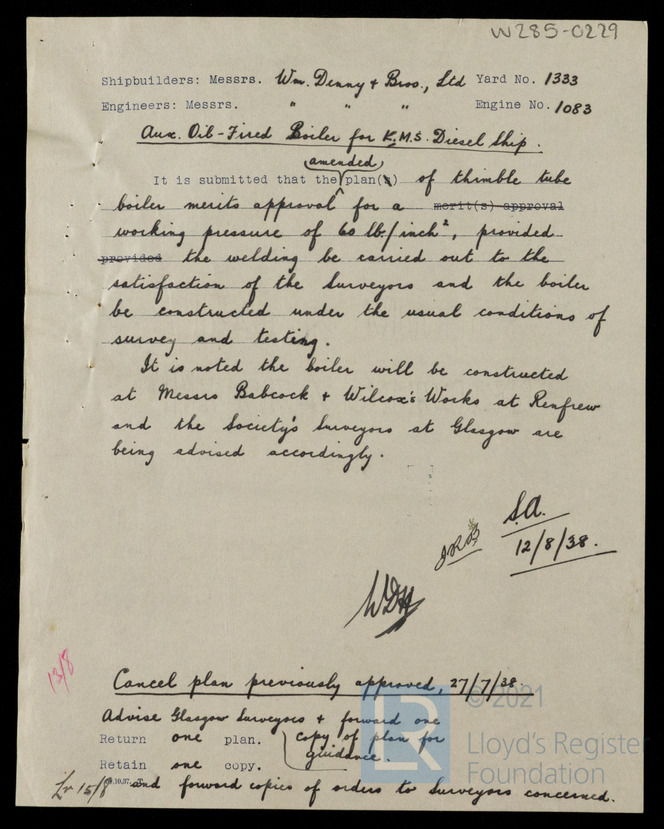 W285-0229
Shipbuilders: Messrs. Wm. Denny & Bros., Ltd Yard No. 1333
Engineers: Messrs. " " " Engine No. 1083
Aux. Oil-Fired Boiler for K.M.S. Diesel Ship.
amended
It is submitted that the plan(s) of thimble tube
boiler merits approval for a merit(s) approval
working pressure of 60 lb./inch², provided
provided the welding be carried out to the
satisfaction of the Surveyors and the boiler
be constructed under the usual conditions of
survey and testing.
It is noted the boiler will be constructed
at Messrs Babcock & Wilcox's Works at Renfrew
and the Society's Surveyors at Glasgow are
being advised accordingly.
S.A.
12/8/38.
JRB
WDH
13/8
Cancel plan previously approved, 27/7/38.
© 2021
Advise Glasgow Surveyors & forward one
Return one plan. copy of plan for
guidance.
Retain one copy.
15/8 and forward copies of orders to Surveyors concerned.
LR
Lloyd's Register
Foundation